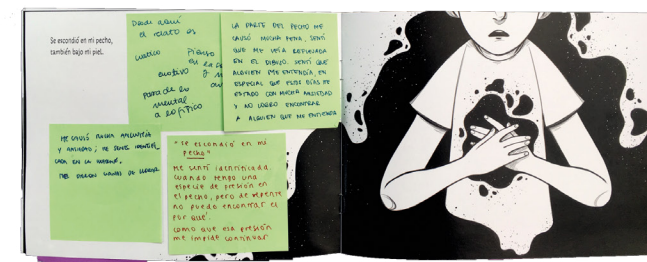 Se escondió en mi pecho,
también bajo mi piel.
Desde aquí
el relato es
Pienso
en la
emotivo y
Pasa de lo
mental
a lo físico
LA PARTE DEL PECHO ME
CAUSÓ MUCHA PENA, SENTÍ
QUE ME VEÍA REFLEJADA
EN EL DIBUJO. SENTÍ QUE
ALGUIEN ME ENTENDÍA, EN
ESPECIAL QUE ESOS DÍAS HE
ESTADO CON MUCHA ANSIEDAD
Y NO LOGRO ENCONTRAR
A ALGUIEN QUE ME ENTIENDA
ME CAUSÓ MUCHA ANGUSTIA
Y ANSIEDAD, ME SENTÍ
EN LA
GANAS DE LLORAR
"Se escondió en mi
pecho"
Me sentí identificada.
Cuando tengo una
especie de presión en
el pecho, pero de repente
no puedo encontrar el
por qué.
Como que esa presión
me impide continuar